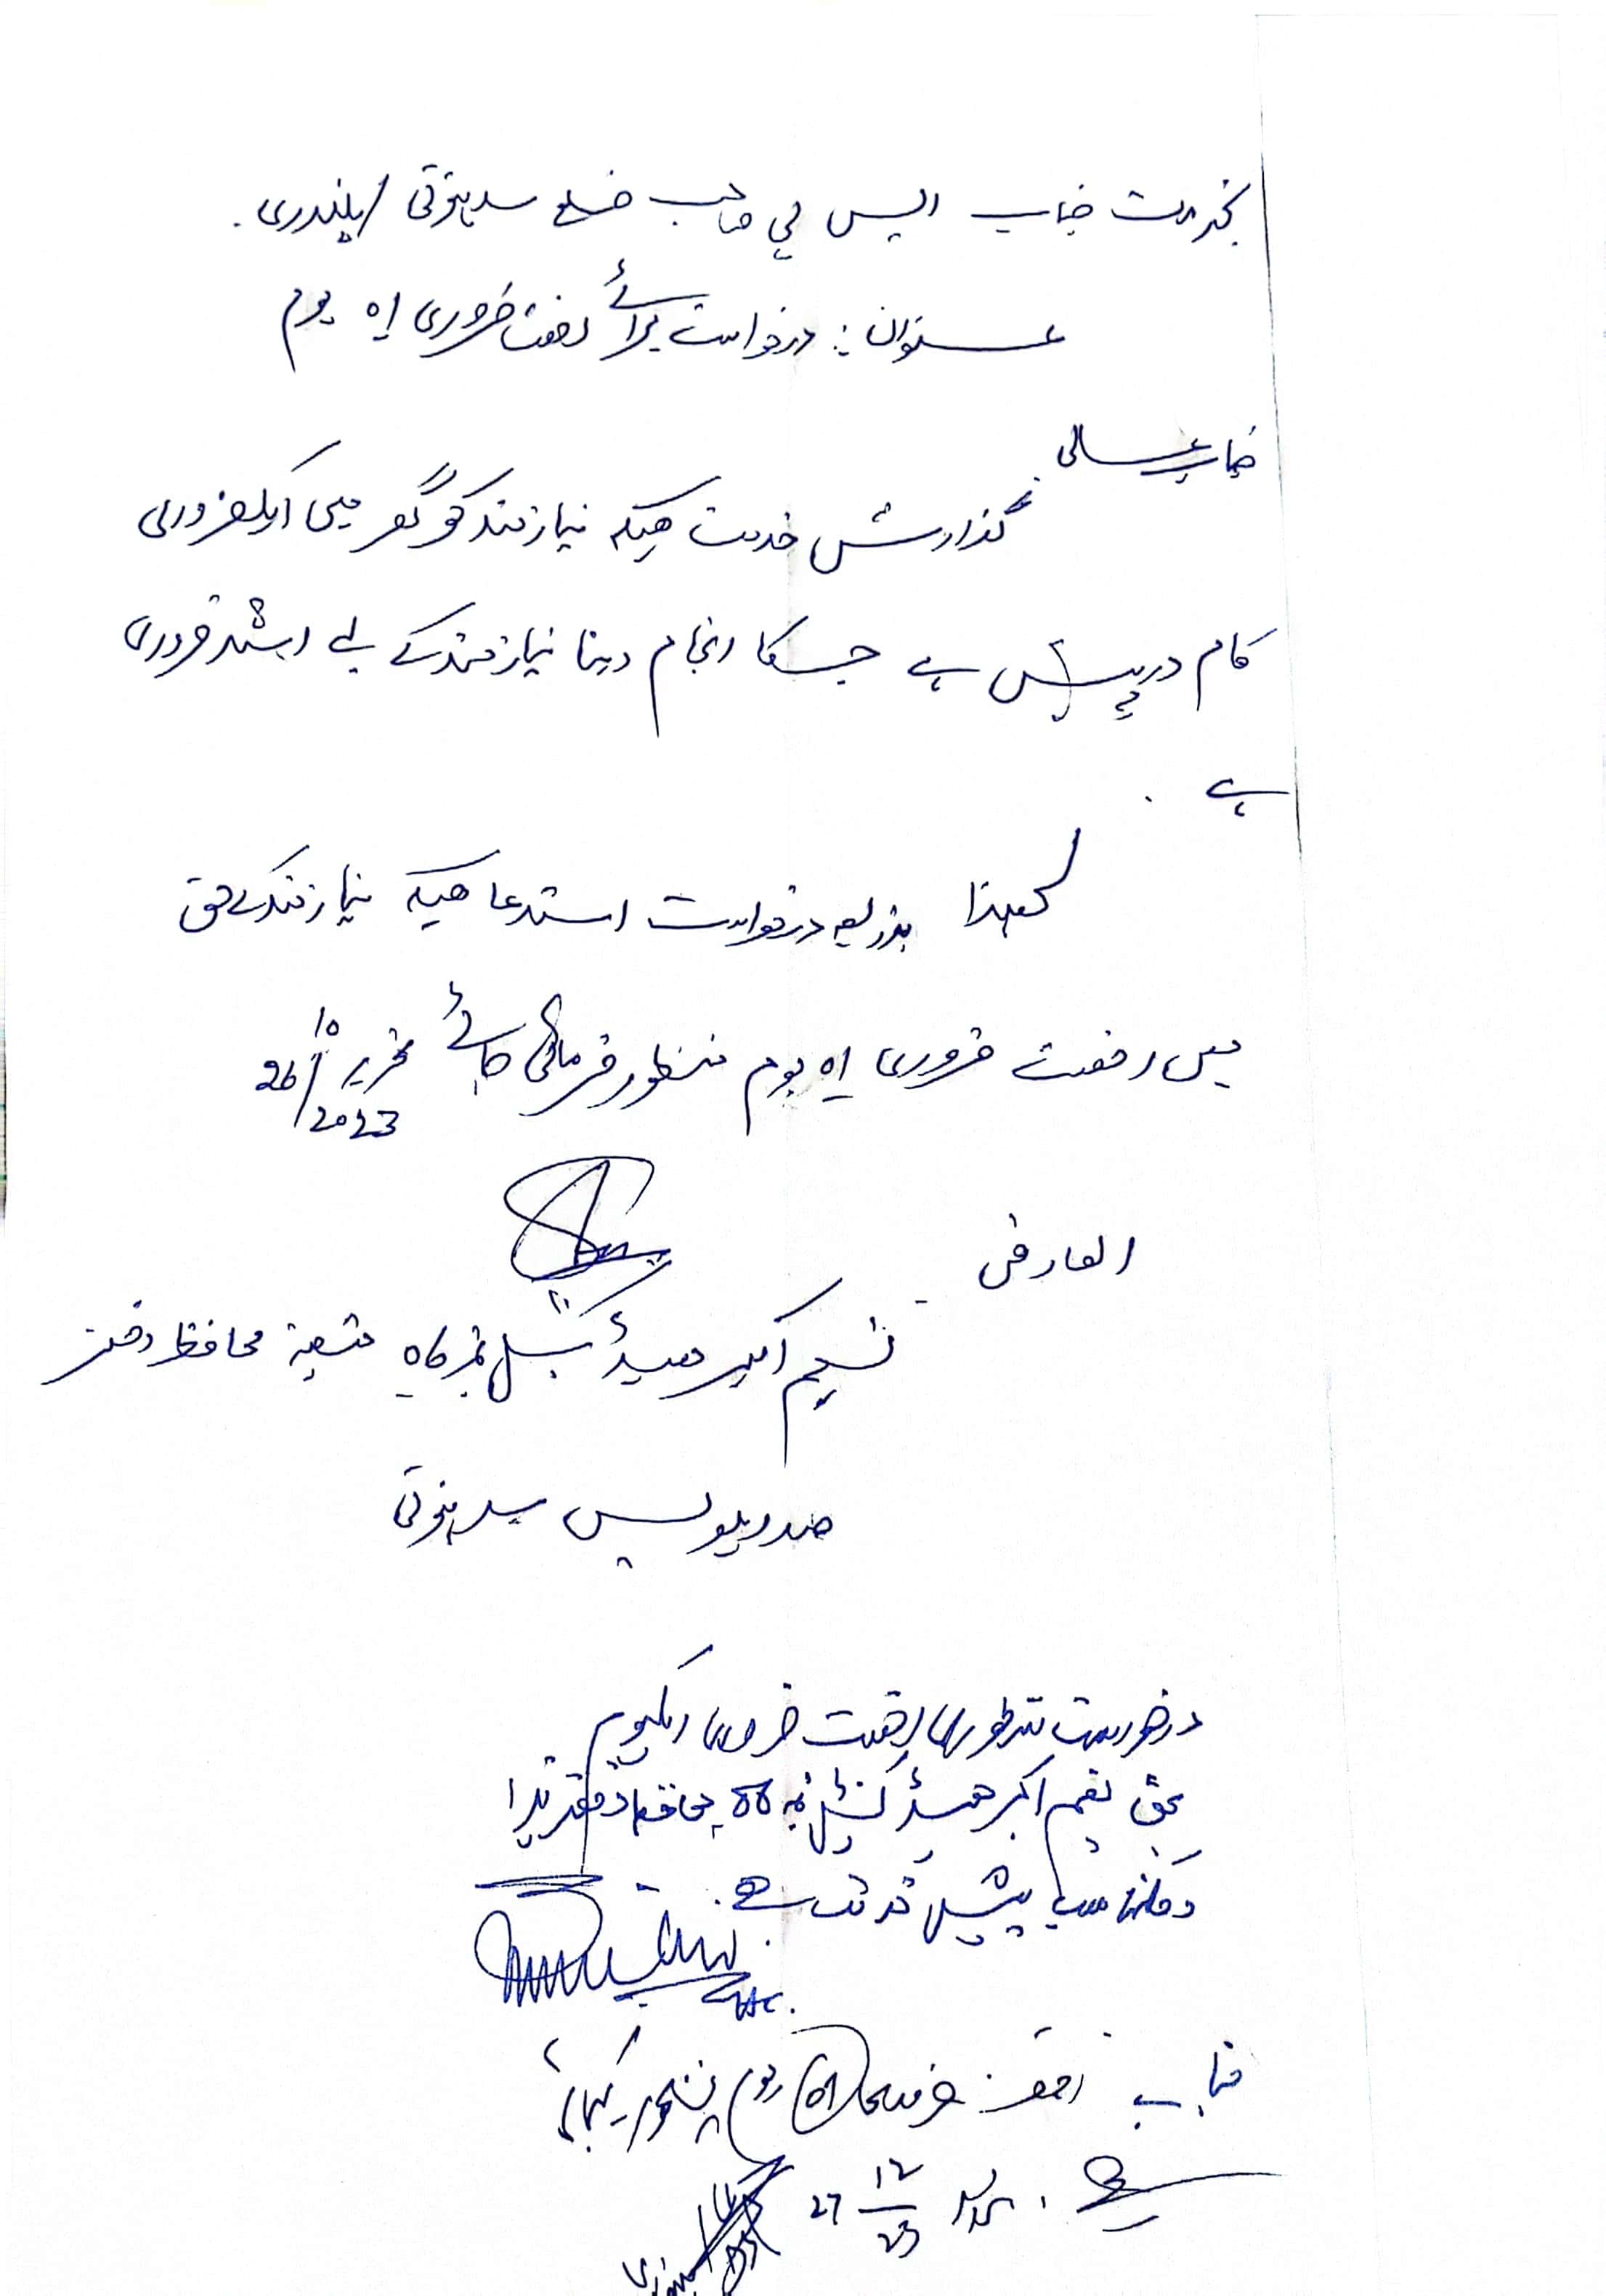 بخدمت جناب ایس پی صاحب ضلع سدہنوتی / پلندری ۔
عنوان : درخواست برائے رخصت ضروری 01 یوم
جناب عالی
گذارش خدمت ہیکہ نیازمند کو گھر میں ایک ضروری
کام درپیش ہے جسکا انجام دینا نیازمند کے لے اشد ضروری
ہے ۔
لھذا بذریعہ درخواست استدعا ہیکہ نیازمند کے حق
میں رخصت ضروری 01 یوم منظور فرمائی جائے تحریر 26/10/2023
العارض
نسیم اکبر ہیڈ کنسٹیبل نمبر متعینہ محافظ دفتر
صدر پولیس سدہنوتی
درخواست منظوری رخصت ضروری ایکیوم
بحق نسیم اکبر ہیڈ کنسٹیبل نمبر محافظ دفتر ہذا
مناسب پیش خدمت ہے ۔
جناب رخصت 01 یوم منظور
27 12/23